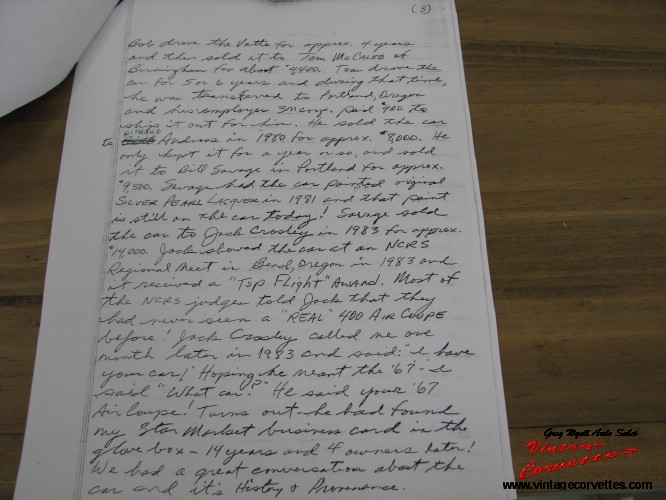 (3)
Bob drove the Vette for approx. 4 years
and then sold it to Tom McCaleb of
Birmingham for about $4400. Tom drove the
car for 5 or 6 years and during that time,
he was transferred to Portland, Oregon
and his employer 3M Corp. paid $900 to
ship it out for him. He sold the car
to RICHARD Andrews in 1980 for approx. $8,000. He
only kept it for a year or so, and sold
it to Bill Savage in Portland for approx.
$9,500. Savage had the car painted orginal
SILVER PEARL LACQUER in 1981 and that paint
is still on the car today! Savage sold
the car to Jack Crosley in 1983 for approx.
$14,000. Jack showed the car at an NCRS
Regional Meet in Bend, Oregon in 1983 and
it received a "TOP Flight" AWARD. Most of
the NCRS judges told Jack that they
had never seen a "REAL" 400 AIR COUPE
before! Jack Crosley called me one
month later in 1983 and said: "I have
your car! Hoping he meant the '67 - I
said "What car?" He said your '67
Air Coupe! Turns out he had found
my Star Market business card in the
glove box - 14 years and 4 owners later!
We had a great conversation about the
car and it's History & Provenance.
Greg Wyatt Auto Sales
Vintage
Corvettes
www.vintagecorvettes.com